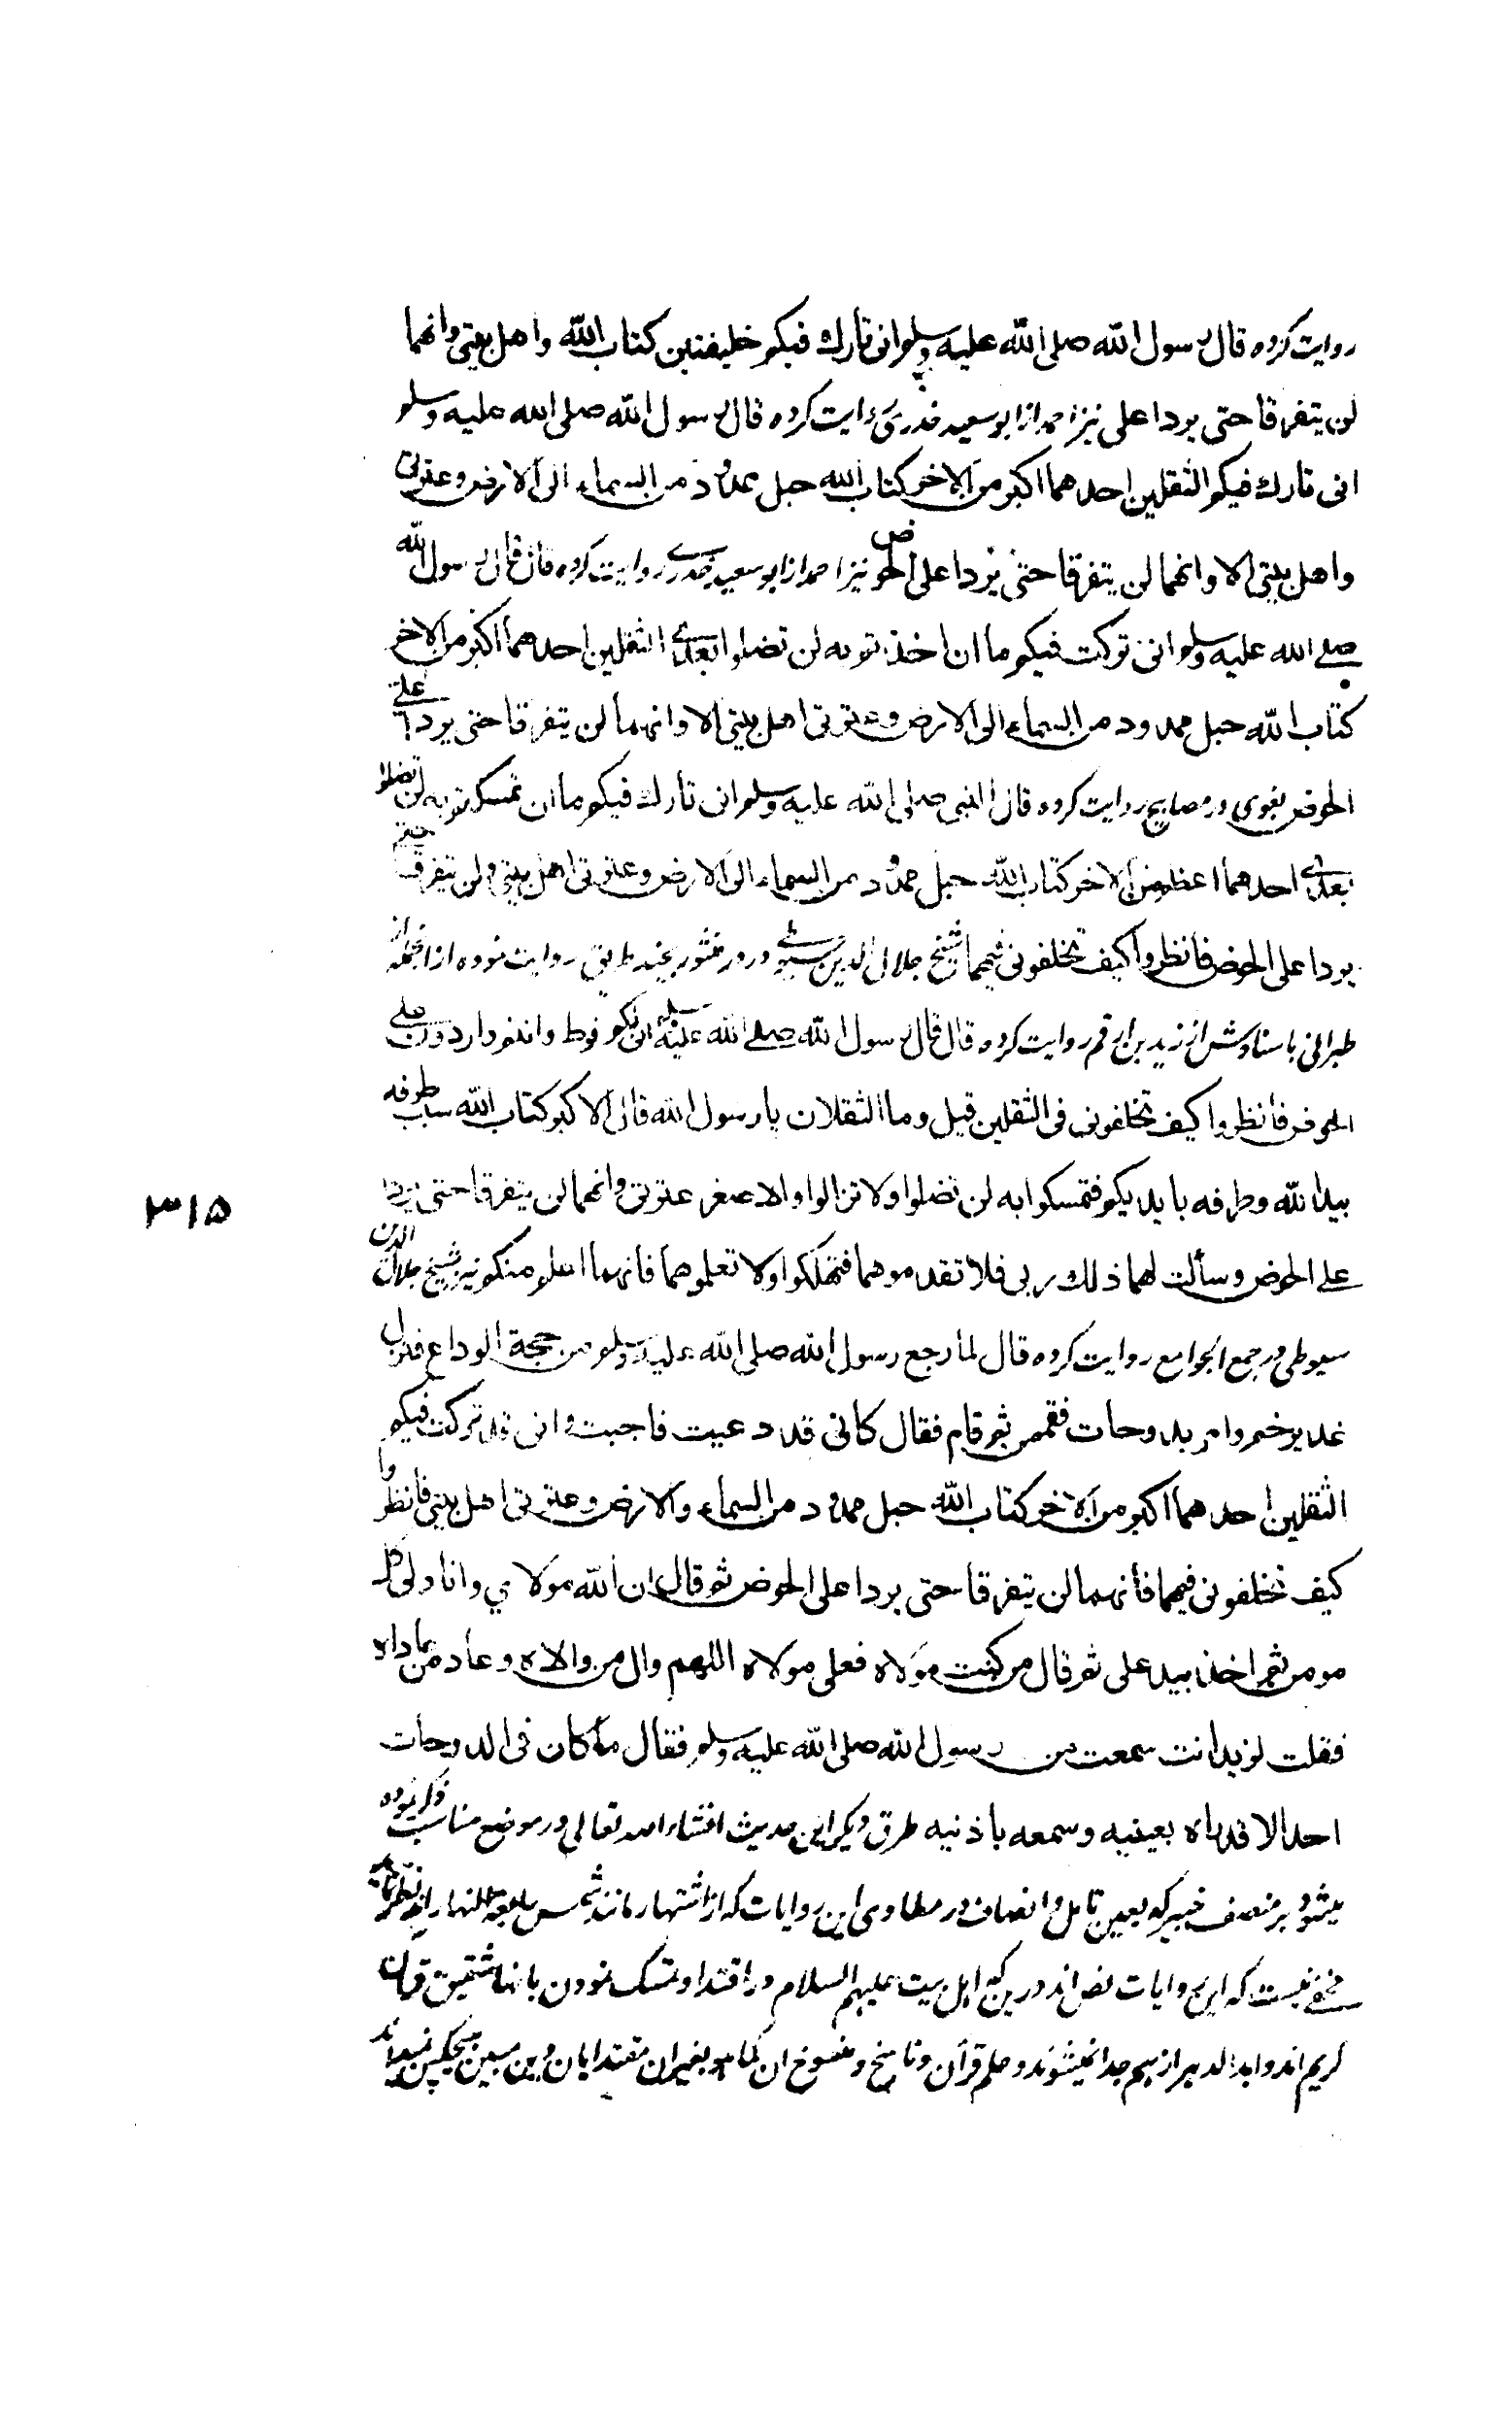 روایت کرده قال رسول الله صلی الله علیه وسلم انی تارك فیکم خلیفتین کتاب الله واهل بیتی وانهما
لن یتفرقا حتی یردا علی نیز احمد از ابو سعید خدری روایت کرده قال رسول الله صلی الله علیه وسلم
انی تارك فیکم الثقلین احدهما اکبر من الاخر کتاب الله حبل ممدود من السماء الی الارض وعترتی
واهل بیتی الا وانهما لن یتفرقا حتی یردا علی الحوض نیز احمد از ابو سعید خدری روایت کرده قال قال رسول الله
صلی الله علیه وسلم انی ترکت فیکم ما ان اخذتم به لن تضلوا بعدی الثقلین احدهما اکبر من الاخر
کتاب الله حبل ممدود من السماء الی الارض وعترتی اهل بیتی الا وانهما لن یتفرقا حتی یردا علی
الحوض بغوی در مصابیح روایت کرده قال النبی صلی الله علیه وسلم انی تارك فیکم ما ان تمسکتم به لن تضلوا
بعدی احدهما اعظم من الاخر کتاب الله حبل ممدود من السماء الی الارض وعترتی اهل بیتی ولن یتفرقا حتی
یردا علی الحوض فانظروا کیف تخلفونی فیهما شیخ جلال الدین سیوطی در در منثور بچند طریق روایت نموده از انجمله از
طبرانی باسنادش از زید بن ارقم روایت کرده قال قال رسول الله صلی الله علیه وسلم انی لکم فرط وانتم واردون علی
الحوض فانظروا کیف تخلفونی فی الثقلین قیل وما الثقلان یا رسول الله قال الاکبر کتاب الله سبب طرفه
بید الله وطرفه بایدیکم فتمسکوا به لن تضلوا ولا تزالوا والاصغر عترتی وانهما لن یتفرقا حتی یردا
علی الحوض وسألت لهما ذلك ربی فلا تقدموهما فتهلکوا ولا تعلموهما فانهما اعلم منکم نیز شیخ جلال الدین
سیوطی در جمع الجوامع روایت کرده قال لما رجع رسول الله صلی الله علیه وسلم من حجة الوداع فنزل
غدیر خم وامر بدوحات فقممن ثم قام فقال کانی قد دعیت فاجبت وانی قد ترکت فیکم
الثقلین احدهما اکبر من الاخر کتاب الله حبل ممدود من السماء والارض وعترتی اهل بیتی فانظروا
کیف تخلفونی فیهما فانهما لن یتفرقا حتی یردا علی الحوض ثم قال ان الله مولای وانا ولی کل
مومن ثم اخذ بید علی ثم قال من کنت مولاه فعلی مولاه اللهم وال من والاه وعاد من عاداه
فقلت لزید انت سمعت من رسول الله صلی الله علیه وسلم فقال ما کان فی الدوحات
احد الا قد راه بعینیه وسمعه باذنیه طرق دیگر این حدیث انشاء الله تعالی در موضع مناسب ذکر نموده
میشود بر منصف خبیر که بعین تامل و انصاف در مطاوی این روایات که از اشتهار مانند شمس رابعة النهار اند نظر نماید
مخفی نیست که این روایات نص اند درین که اهل بیت علیهم السلام در اقتدا و تمسک نمودن بانها شقیق قرآن
کریم اند و ابد الدهر از هم جدا نمیشوند و علم قرآن و ناسخ و منسوخ آن کما هو بغیر این مقتدایان دین مبین هیچکس نمیداند
۳۱۵